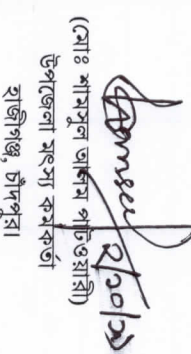 (মোঃ শামসুল আলম পাটওয়ারী)
উপজেলা মৎস্য কর্মকর্তা
হাজিগঞ্জ, চাঁদপুর।